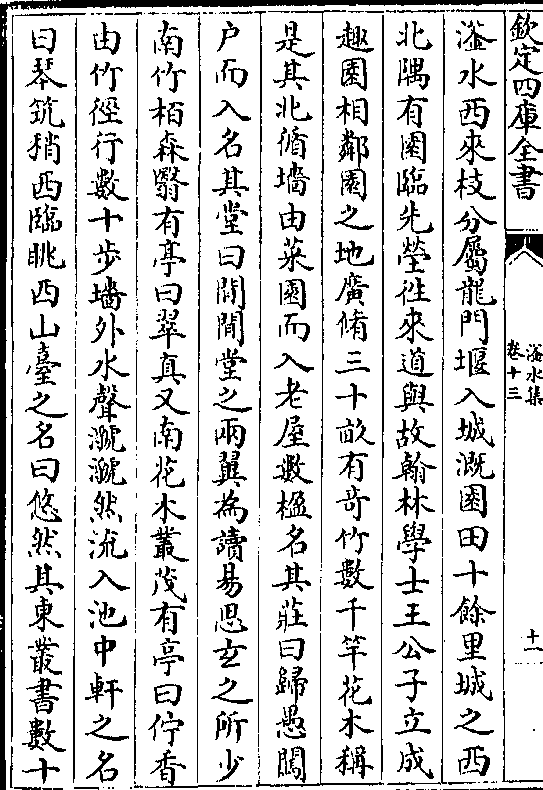 欽定四庫全書
滏水集
卷十三
十一
滏水西來枝分屬龍門堰入城溉園田十餘里城之西
北隅有園臨先塋徃來道與故翰林學士王公子立成
趣園相鄰園之地廣脩三十畝有竒竹數千竿花木稱
是其北循墻由菜園而入老屋數楹名其莊曰歸愚闢
户而入名其堂曰閒閒堂之兩翼為讀易思玄之所少
南竹栢森翳有亭曰翠真又南花木叢茂有亭曰佇香
由竹徑行數十步墻外水聲㶁㶁然流入池中軒之名
曰琴筑稍西臨眺西山臺之名曰悠然其東叢書數十